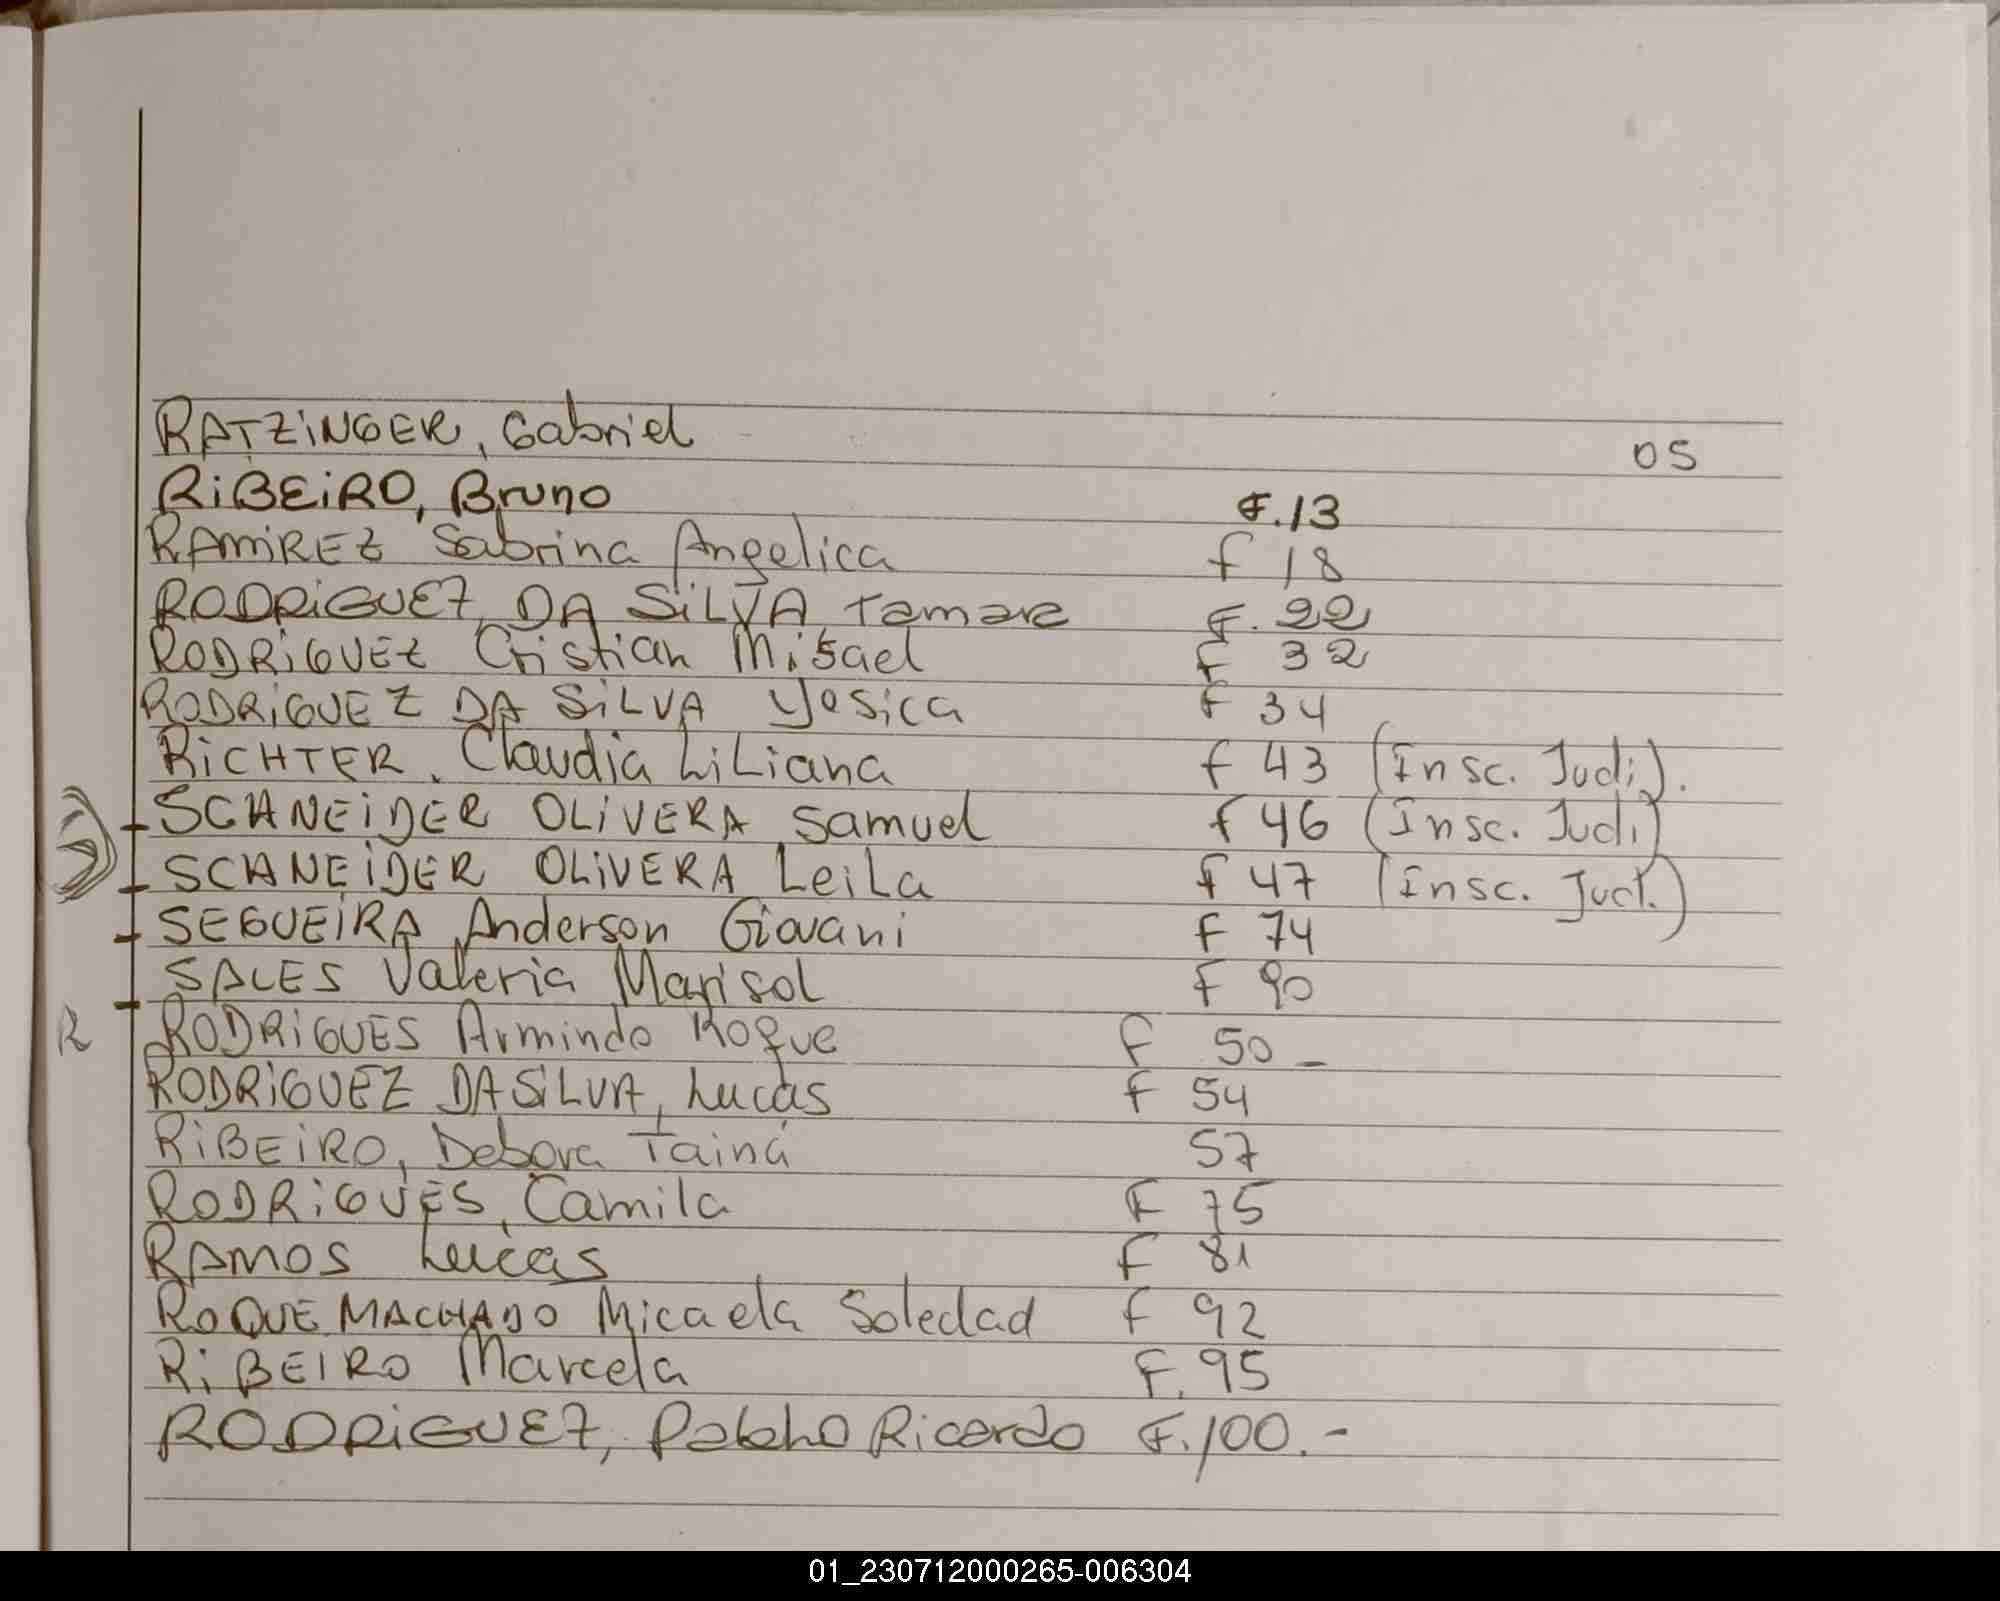 RATZiNGER, Gabriel 05
RiBEiRO, Bruno F.13
RAMiREZ Sabrina Angelica f 18
RODRiGUEZ DA SiLVA Tamara F. 22
RODRiGUEZ Cristian Misael F 32
RODRiGUEZ DA SiLVA Yesica F 34
RiCHTER. Claudia LiLiana f 43 (Insc. Judi).
SCHNEiDER OLiVERA Samuel F 46 (Insc. Judi)
SCHNEiDER OLiVERA LeiLa F 47 (Insc. Jud.)
SEGUEiRA Anderson Giovani F 74
SALES Valeria Marisol F 90
R RODRiGUES Armindo Roque F 50 -
RODRiGUEZ DA SiLVA, Lucas F 54
RiBEiRO, Debora Tainá 57
RODRiGUES, Camila F 75
RAMOS Lucas F 81
ROQUE MACHADO Micaela Soledad F 92
RiBEIRO Marcela F. 95
RODRiGUEZ, Ricardo F.100.-
01_230712000265-006304